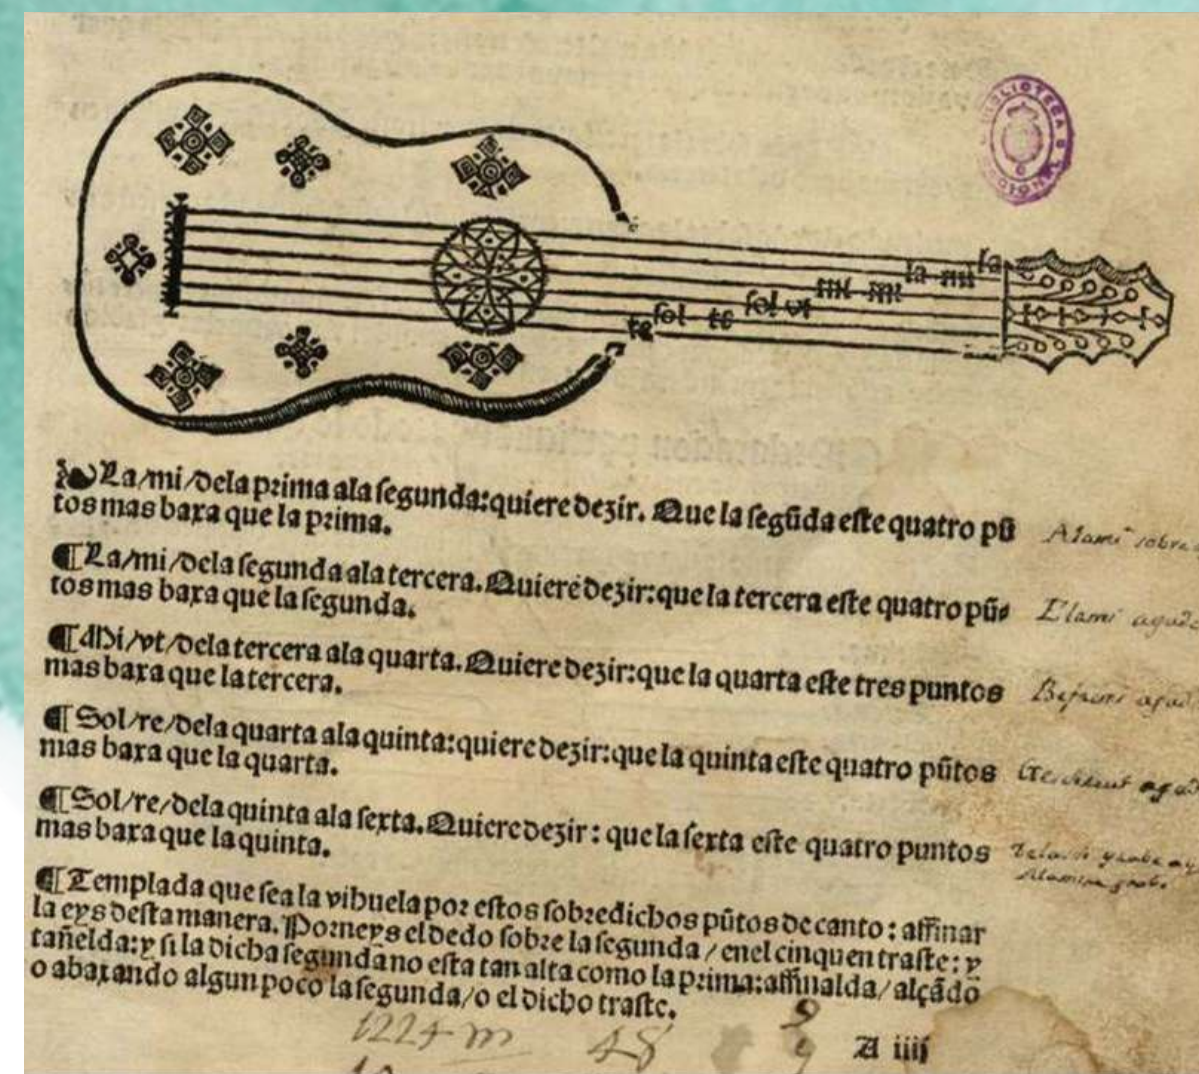 BIBLIOTECA
la
la mi
mi mi
sol vt
sol re
re
❧ La/mi/dela prima ala segunda:quiere dezir. Que la segũda este quatro pũ
tos mas baxa que la prima.
Alami sobre
¶ La/mi/dela segunda ala tercera. Quiere dezir:que la tercera este quatro pũ
tos mas baxa que la segunda.
Elami agudo
¶ Mi/vt/dela tercera ala quarta. Quiere dezir:que la quarta este tres puntos
mas baxa que la tercera.
Befami
¶ Sol/re/dela quarta ala quinta:quiere dezir:que la quinta este quatro pũtos
mas baxa que la quarta.
¶ Sol/re/dela quinta ala sexta. Quiere dezir: que la sexta este quatro puntos
mas baxa que la quinta.
¶ Templada que sea la vihuela por estos sobredichos pũtos de canto: affinar
la eys desta manera. Porneys el dedo sobre la segunda / enel cinquen traste: y
tañelda:y si la dicha segunda no esta tan alta como la prima:affinalda/alçãdo
o abaxando algun poco la segunda/o el dicho traste.
1224 m 48 9
A iiij